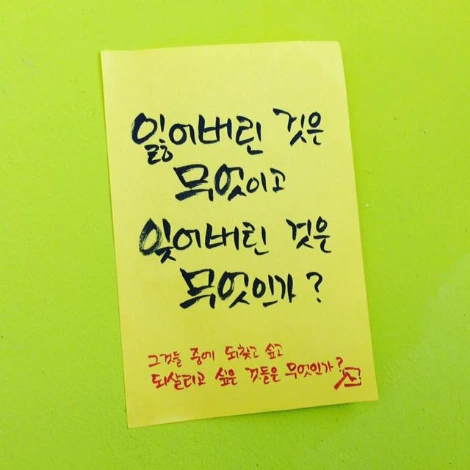 잃어버린 것은
무엇이고
잊어버린 것은
무엇인가?
그것들 중에 되찾고 싶고
되살리고 싶은 것들은 무엇인가?